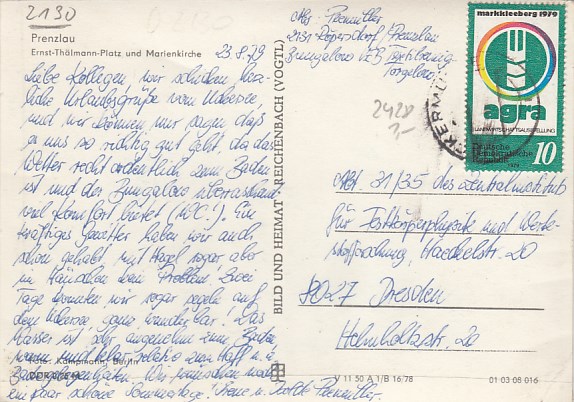 2130
Prenzlau
Ernst-Thälmann-Platz und Marienkirche
23.8.79
Liebe Kollegen, wir schicken herz-
liche Urlaubsgrüße vom Uckersee,
und wir können nur sagen, daß
es uns so richtig gut geht, da das
Wetter recht ordentlich zum Baden
ist und der Bungalow überraschend
viel Komfort bietet (WC!). Ein
kräftiges Gewitter haben wir auch
schon gehabt, mit Hagel sogar aber
im Häuschen kein Problem! Zwei
Tage konnten wir sogar segeln auf
dem Uckersee, ganz wunderbar! Das
Wasser ist sehr angenehm zum Baden
warm und klar
Wir wünschen noch
ein paar schöne Sommertage!
Foto: Kampmann, Berlin
BILD UND HEIMAT REICHENBACH (VOGTL)
V 11 50 A 1/B 16/78
01 03 08 016
2131 Röpersdorf/Prenzlau
Bungalow VEB
2428
markkleeberg 1979
agra
LANDWIRTSCHAFTSAUSSTELLUNG
Deutsche
Demokratische
Republik
10
1979
Abt. 31/35 des Zentralinstituts
für Festkörperphysik und Werk-
stofforschung, Haeckelstr. 20
8027 Dresden
Helmholtzstr. 20